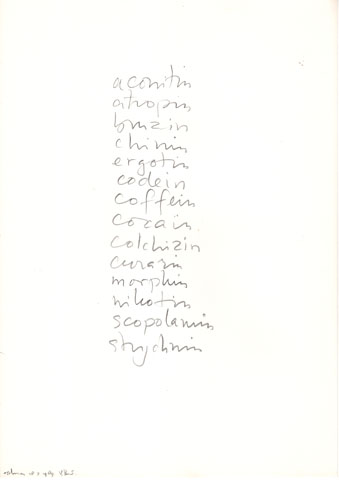 aconitin
atropin
bruzin
chinin
ergotin
codein
coffein
cocain
colchizin
curarin
morphin
nikotin
scopolamin
strychnin